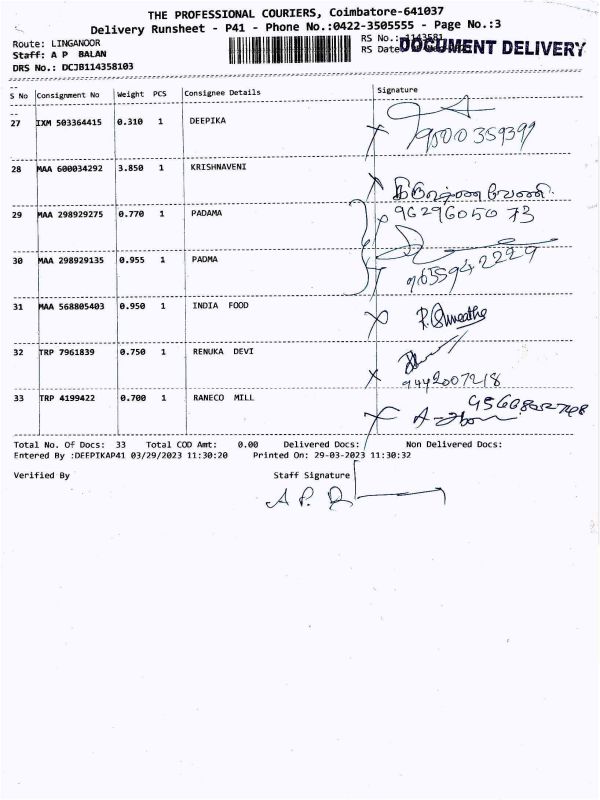 THE PROFESSIONAL COURIERS, Coimbatore-641037
Delivery Runsheet - P41 - Phone No.:0422-3505555 - Page No.:3
Route: LINGANOOR
RS No.: 1143581
Staff: A P BALAN
RS Date
DOCUMENT DELIVERY
DRS No.: DCJB114358103
S No Consignment No Weight PCS Consignee Details Signature
27 IXM 503364415 0.310 1 DEEPIKA
28 MAA 600034292 3.850 1 KRISHNAVENI
கிருஷ்ணவேணி
29 MAA 298929275 0.770 1 PADAMA 9629605073
30 MAA 298929135 0.955 1 PADMA
9655942229
31 MAA 568805403 0.950 1 INDIA FOOD
32 TRP 7961839 0.750 1 RENUKA DEVI
9442007218
33 TRP 4199422 0.700 1 RANECO MILL
Total No. Of Docs: 33 Total COD Amt: 0.00 Delivered Docs: Non Delivered Docs:
Entered By :DEEPIKAP41 03/29/2023 11:30:20 Printed On: 29-03-2023 11:30:32
Verified By Staff Signature
A P.